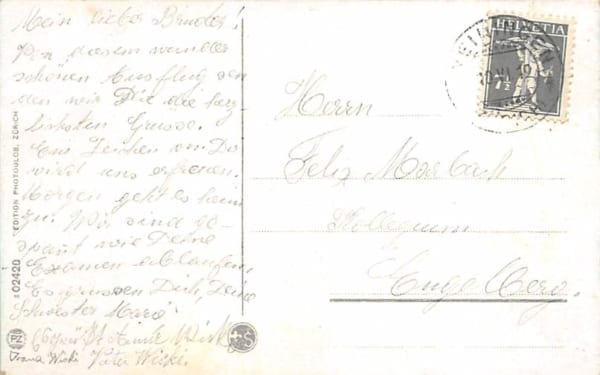 Mein lieber Bruder!
Von diesem wunder
schönen Ausflug sen
den wir Dir die herz
lichsten Grüsse.
Ein Zeichen von Da
wird uns erfreuen.
Morgen geht es heim
zu. Wir sind ge-
spannt wie Deine
Examen ablaufen.
Es grüssen Dich, Deine
Schwester
Wicki
Franz Wicki Vater Wicki.
PZ
S 02420 EDITION PHOTOGLOB, ZÜRICH
HELVETIA
7½
Herrn
Felix Marbach
Kollegium
Engelberg.